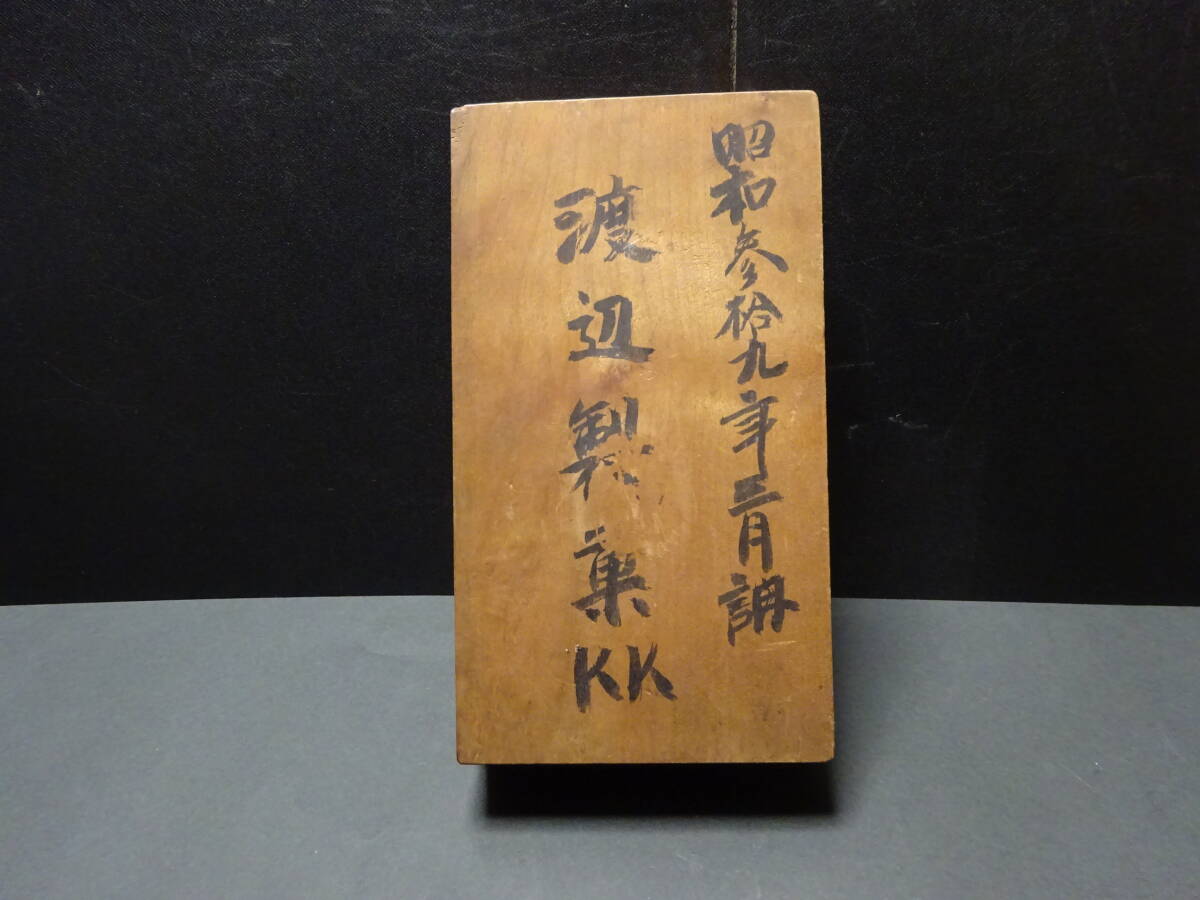 昭和参拾九年三月調
渡辺製菓KK